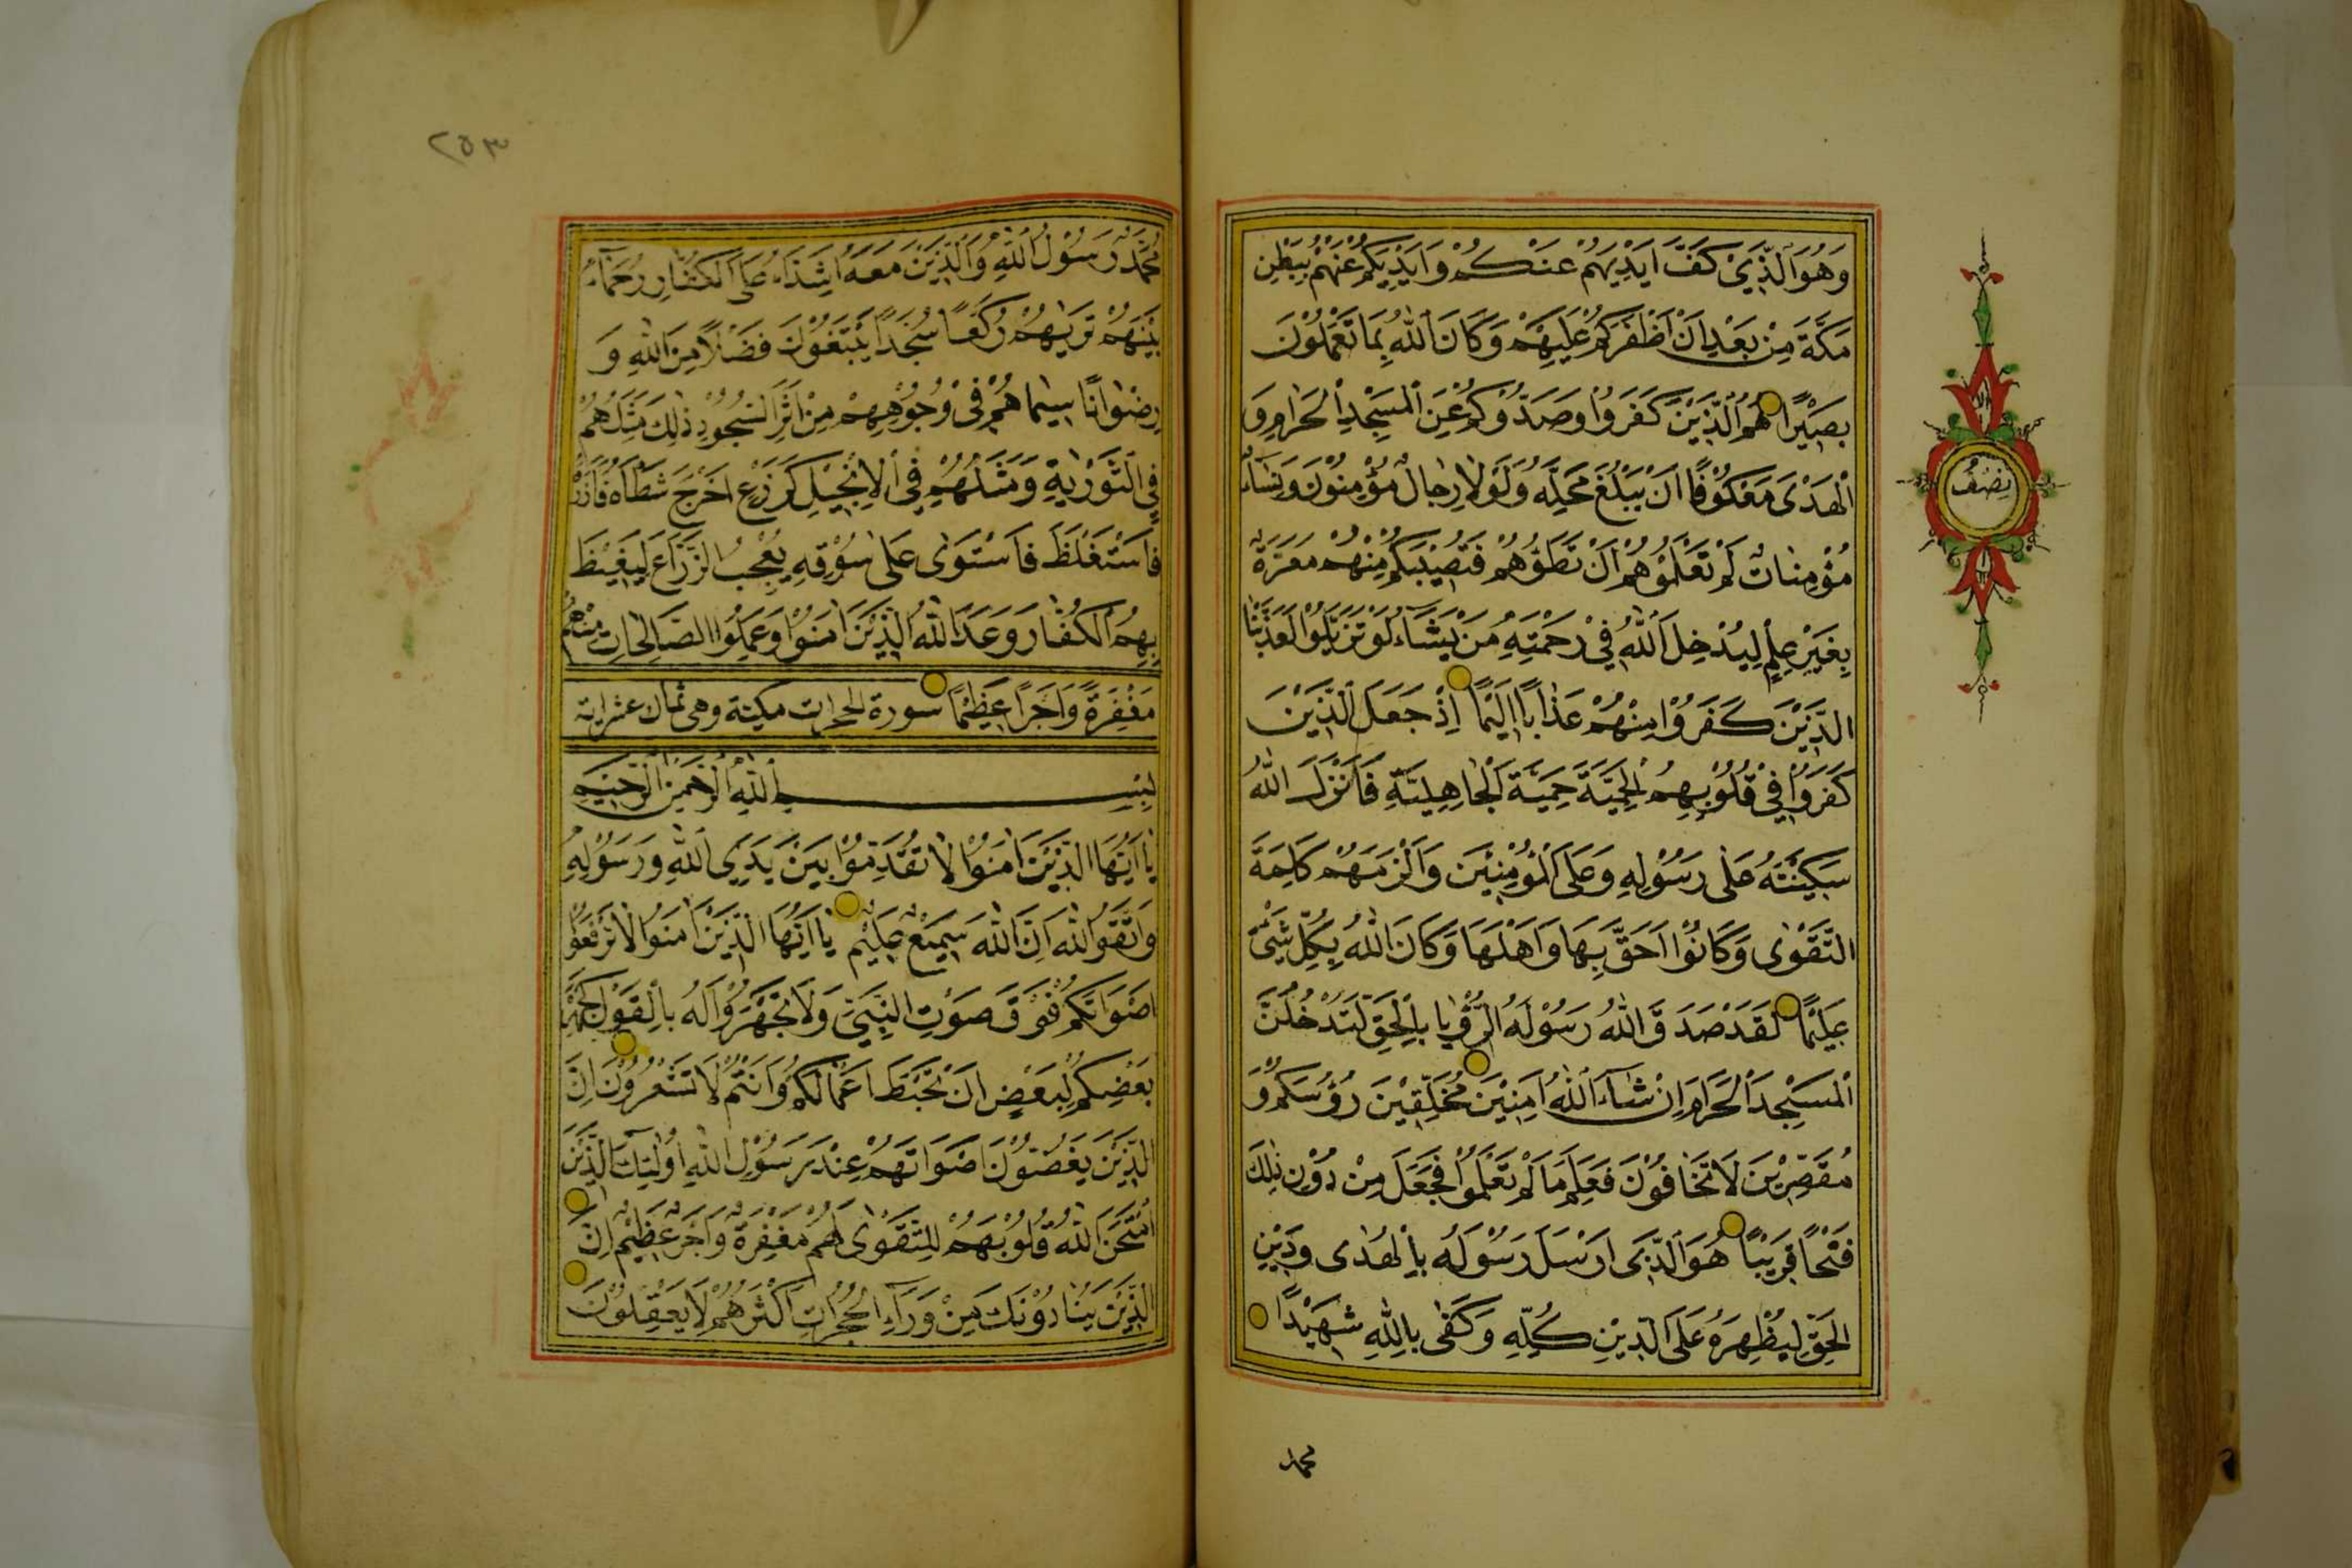 وَهُوَ الَّذِيْ كَفَّ اَيْدِيَهُمْ عَنْكُمْ وَاَيْدِيَكُمْ عَنْهُمْ بِبَطْنِ
مَكَّةَ مِنْ بَعْدِ اَنْ اَظْفَرَكُمْ عَلَيْهِمْ وَكَانَ اللّٰهُ بِمَا تَعْمَلُوْنَ
بَصِيْرًا هُمُ الَّذِيْنَ كَفَرُوْا وَصَدُّوْكُمْ عَنِ الْمَسْجِدِ الْحَرَامِ وَ
الْهَدْىَ مَعْكُوْفًا اَنْ يَبْلُغَ مَحِلَّهُ وَلَوْلَا رِجَالٌ مُؤْمِنُوْنَ وَنِسَاۤءٌ
مُؤْمِنَاتٌ لَمْ تَعْلَمُوْهُمْ اَنْ تَطَؤُهُمْ فَتُصِيْبَكُمْ مِنْهُمْ مَعَرَّةٌ
بِغَيْرِ عِلْمٍ لِيُدْخِلَ اللّٰهُ فِيْ رَحْمَتِهِ مَنْ يَشَاۤءُ لَوْ تَزَيَّلُوْا لَعَذَّبْنَا
الَّذِيْنَ كَفَرُوْا مِنْهُمْ عَذَابًا اَلِيْمًا اِذْ جَعَلَ الَّذِيْنَ
كَفَرُوْا فِيْ قُلُوْبِهِمُ الْحَمِيَّةَ حَمِيَّةَ الْجَاهِلِيَّةِ فَاَنْزَلَ اللّٰهُ
سَكِيْنَتَهُ عَلٰى رَسُوْلِهِ وَعَلَى الْمُؤْمِنِيْنَ وَاَلْزَمَهُمْ كَلِمَةَ
التَّقْوٰى وَكَانُوْا اَحَقَّ بِهَا وَاَهْلَهَا وَكَانَ اللّٰهُ بِكُلِّ شَيْءٍ
عَلِيْمًا لَقَدْ صَدَقَ اللّٰهُ رَسُوْلَهُ الرُّؤْيَا بِالْحَقِّ لَتَدْخُلُنَّ
الْمَسْجِدَ الْحَرَامَ اِنْ شَاۤءَ اللّٰهُ اٰمِنِيْنَ مُحَلِّقِيْنَ رُؤُسَكُمْ وَ
مُقَصِّرِيْنَ لَا تَخَافُوْنَ فَعَلِمَ مَا لَمْ تَعْلَمُوْا فَجَعَلَ مِنْ دُوْنِ ذٰلِكَ
فَتْحًا قَرِيْبًا هُوَ الَّذِى اَرْسَلَ رَسُوْلَهُ بِالْهُدٰى وَدِيْنِ
الْحَقِّ لِيُظْهِرَهُ عَلَى الدِّيْنِ كُلِّهِ وَكَفٰى بِاللّٰهِ شَهِيْدًا
محمد
نِصْفُ
٢٥٣
مُحَمَّدٌ رَسُوْلُ اللّٰهِ وَالَّذِيْنَ مَعَهُ اَشِدَّاۤءُ عَلَى الْكُفَّارِ رُحَمَاۤءُ
بَيْنَهُمْ تَرٰيهُمْ رُكَّعًا سُجَّدًا يَبْتَغُوْنَ فَضْلًا مِنَ اللّٰهِ وَ
رِضْوَانًا سِيْمَاهُمْ فِيْ وُجُوْهِهِمْ مِنْ اَثَرِ السُّجُوْدِ ذٰلِكَ مَثَلُهُمْ
فِي التَّوْرٰيةِ وَمَثَلُهُمْ فِي الْاِنْجِيْلِ كَزَرْعٍ اَخْرَجَ شَطْاَهُ فَاٰزَرَهُ
فَاسْتَغْلَظَ فَاسْتَوٰى عَلٰى سُوْقِهِ يُعْجِبُ الزُّرَّاعَ لِيَغِيْظَ
بِهِمُ الْكُفَّارَ وَعَدَ اللّٰهُ الَّذِيْنَ اٰمَنُوْا وَعَمِلُوا الصَّالِحَاتِ مِنْهُمْ
مَغْفِرَةً وَاَجْرًا عَظِيْمًا سورة الحجرات مكية وهى ثمان عشر اية
بِسْمِ اللّٰهِ الرَّحْمٰنِ الرَّحِيْمِ
يَا اَيُّهَا الَّذِيْنَ اٰمَنُوْا لَا تُقَدِّمُوْا بَيْنَ يَدَيِ اللّٰهِ وَرَسُوْلِهِ
وَاتَّقُوا اللّٰهَ اِنَّ اللّٰهَ سَمِيْعٌ عَلِيْمٌ يَا اَيُّهَا الَّذِيْنَ اٰمَنُوْا لَا تَرْفَعُوْا
اَصْوَاتَكُمْ فَوْقَ صَوْتِ النَّبِيِّ وَلَا تَجْهَرُوْا لَهُ بِالْقَوْلِ كَجَهْرِ
بَعْضِكُمْ لِبَعْضٍ اَنْ تَحْبَطَ اَعْمَالُكُمْ وَاَنْتُمْ لَا تَشْعُرُوْنَ اِنَّ
الَّذِيْنَ يَغُضُّوْنَ اَصْوَاتَهُمْ عِنْدَ رَسُوْلِ اللّٰهِ اُولٰۤئِكَ الَّذِيْنَ
امْتَحَنَ اللّٰهُ قُلُوْبَهُمْ لِلتَّقْوٰى لَهُمْ مَغْفِرَةٌ وَاَجْرٌ عَظِيْمٌ اِنَّ
الَّذِيْنَ يُنَادُوْنَكَ مِنْ وَرَاۤءِ الْحُجُرَاتِ اَكْثَرُهُمْ لَا يَعْقِلُوْنَ